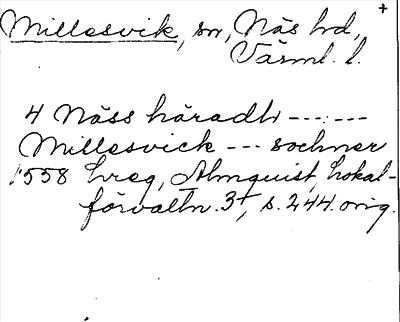 Millesvik, sn, Näs hd, +
Värml. l.
4 Näss häradh ------
Millesvick --- sochner
1558 hreg, Almquist, Lokal-
förvaltn. 3+, s. 244. orig.